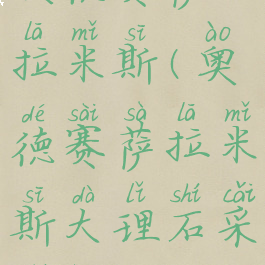 lā mǐ sī ào
拉米斯(奥
dé sài sà lā mǐ
德赛萨拉米
sī dà lǐ shí cǎi
斯大理石采